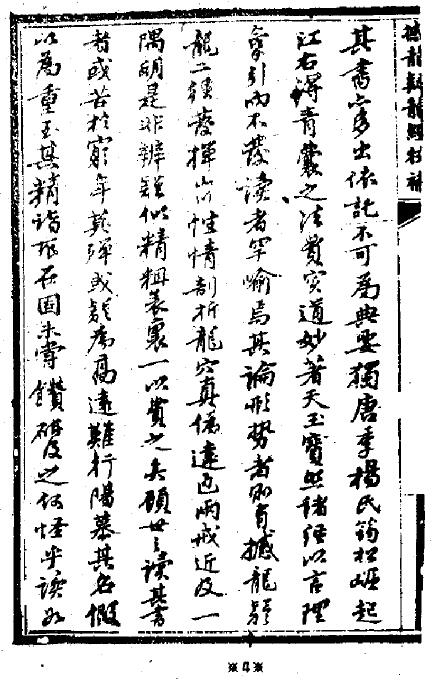 撼龍疑龍經校補
其書出依託不可爲典要獨唐季楊氏筠松崛起
江右得青囊之法貫穿道妙著天玉寶照諸經以言理
氣引而不發讀者罕喻焉其論形勢者則有撼龍疑
龍二種發揮山川性情剖析龍穴真偽遠迄兩戒近及一
隅明是非辨疑似精粗表裏一以貫之矣顧世之讀其書
者或苦於窮年莫殫或疑為高遠難行陽慕其名假
以為重至其精詣所在固未嘗之何怪乎
※4※